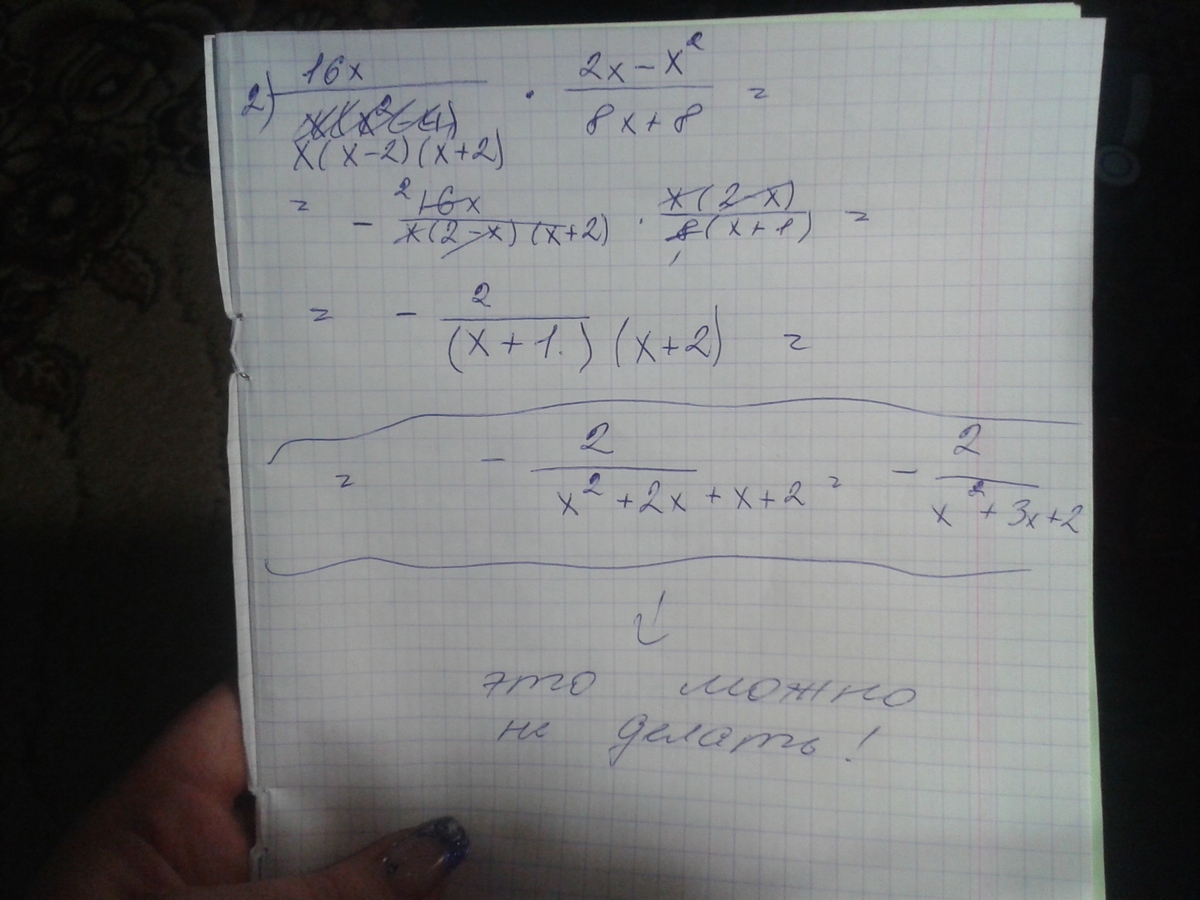 2) 16x / x(x-2)(x+2) · 2x-x² / 8x+8 =
= - ²16x / x(2-x)(x+2) · x(2-x) / 8(x+1) =
= - 2 / (x+1.)(x+2) =
= - 2 / x²+2x+x+2 = - 2 / x²+3x+2
это можно
не делать!